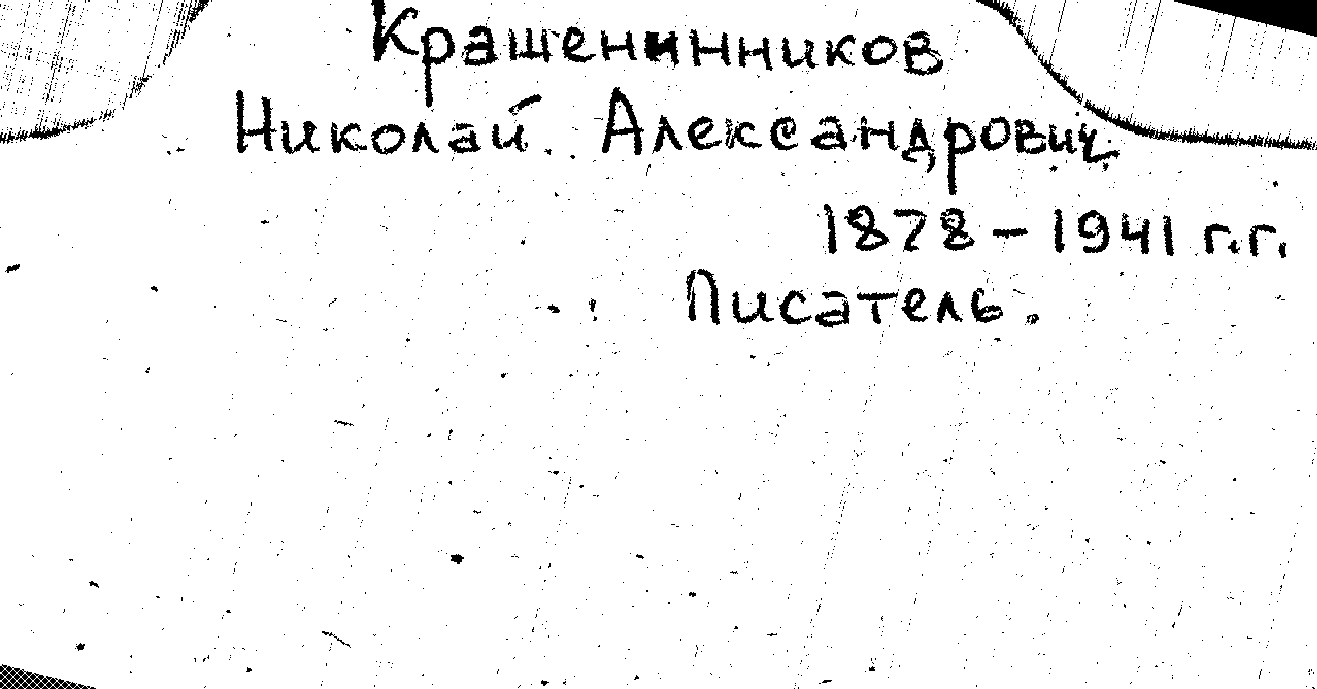 Крашенинников
Николай Александрович
1878 – 1941 г.г.
Писатель.